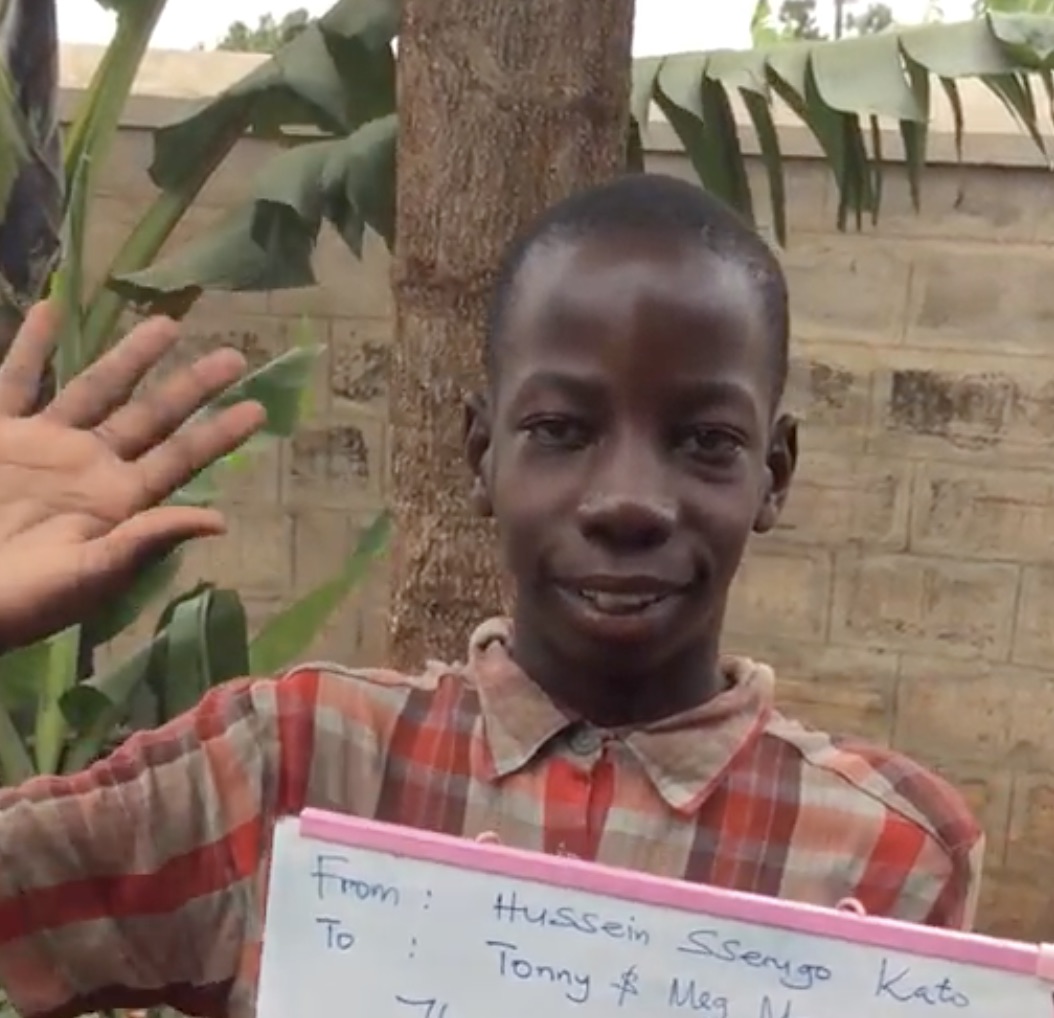 From : Hussein Sserugo Kato
To : Tonny & Meg